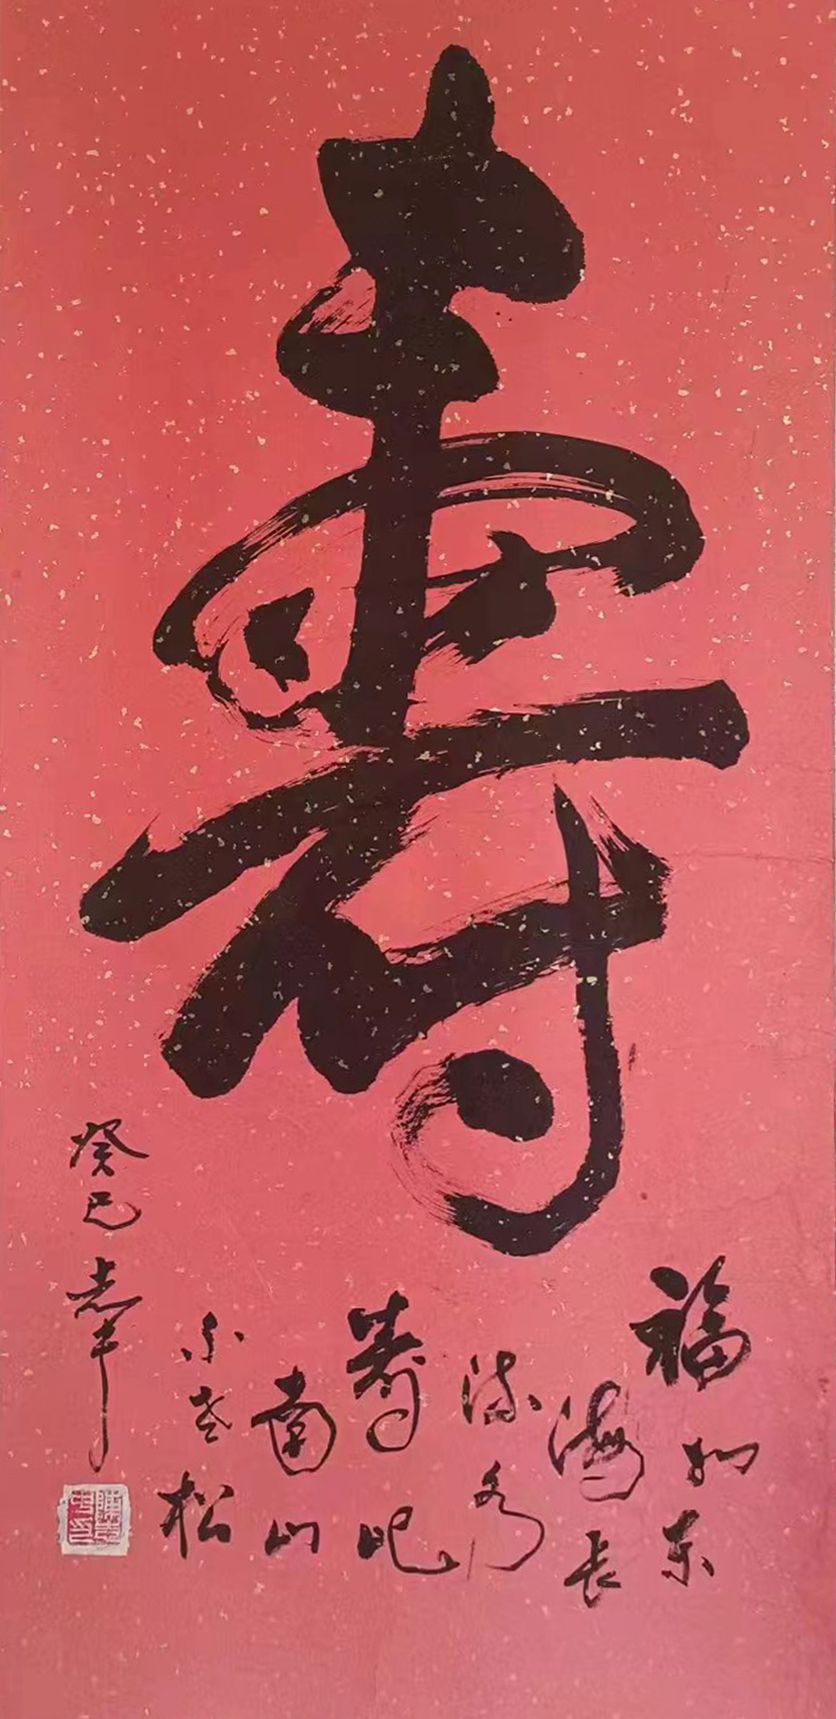 寿
福如东
海长
流水
寿比
南山
不老松
癸巳